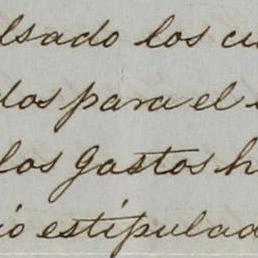 lsado los cu
dos para el
los gastos h
io estipulad